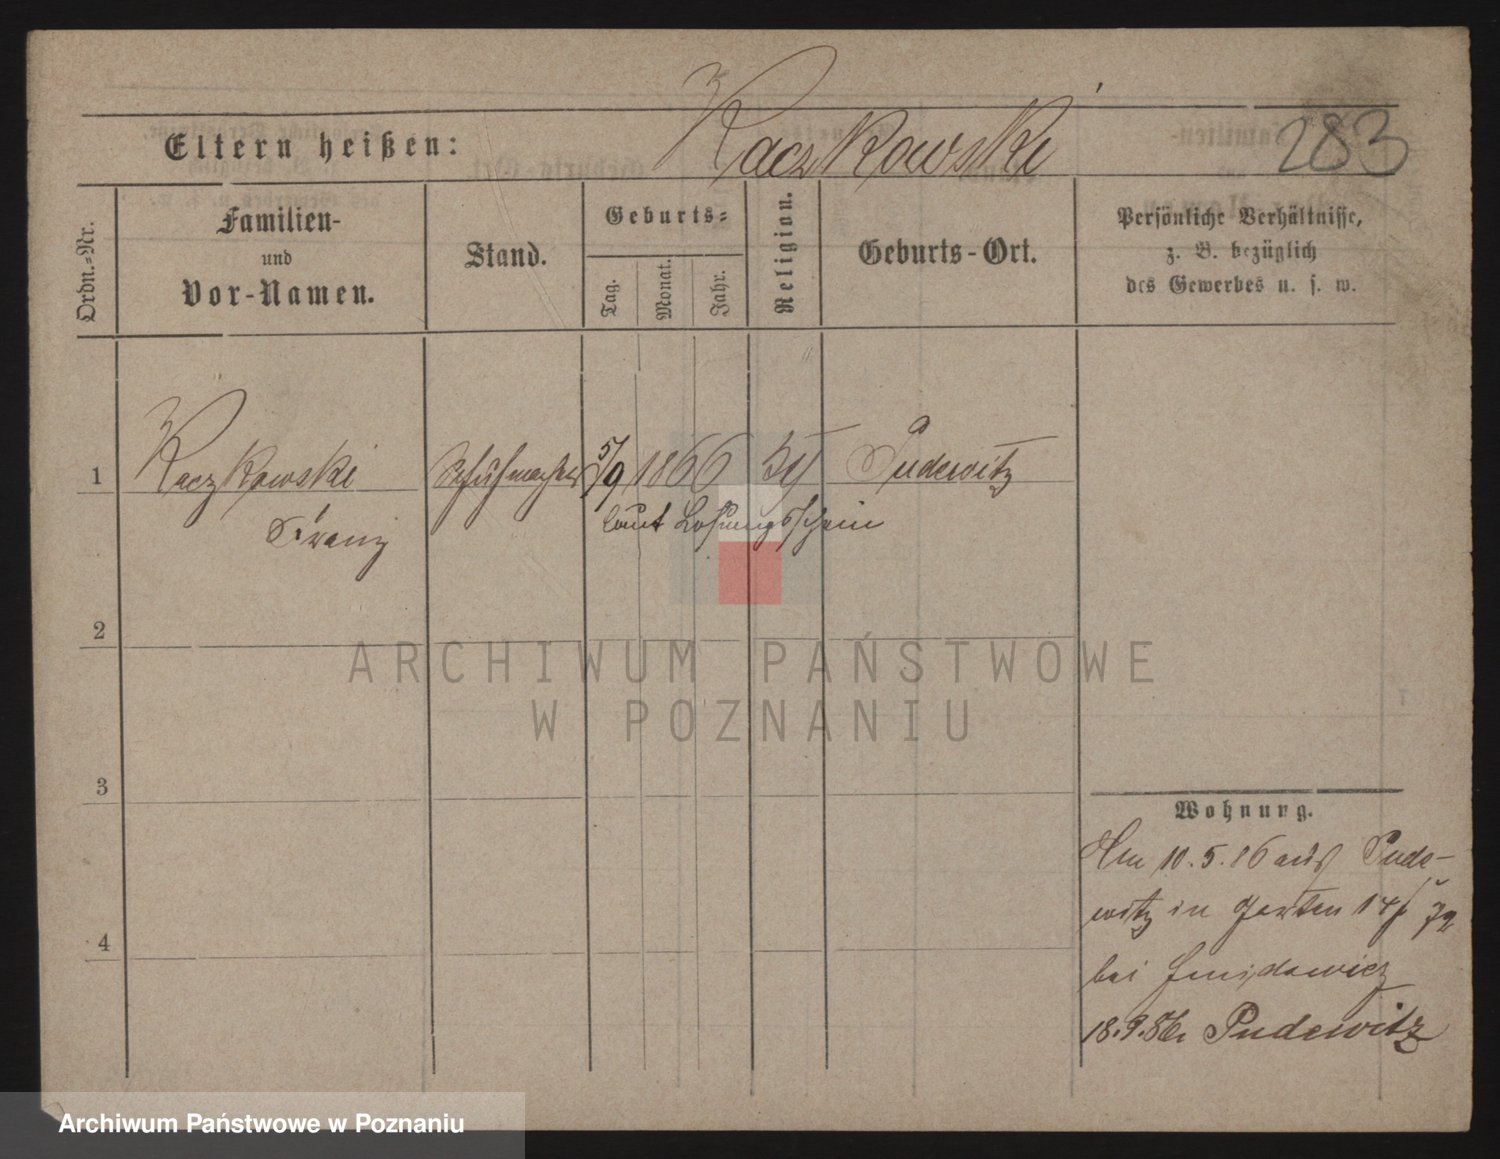 Eltern heißen: Kaczkowski 283
Ordn.-Nr.
Familien-
und
Vor-Namen.
Stand.
Geburts-
Tag.
Monat.
Jahr.
Religion.
Geburts-Ort.
Persönliche Verhältnisse,
z. B. bezüglich
des Gewerbes u. s. w.
1 Kaczkowski Schuhmacher 5/9 1866 Pudewitz
Franz laut Losungsschein
2
ARCHIWUM PAŃSTWOWE
W POZNANIU
3
Wohnung.
Am 10.5.86 aus Pude-
witz in Garten 14
4
bei
18.9.86 Pudewitz
Archiwum Państwowe w Poznaniu